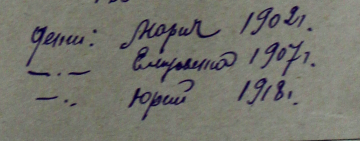 дети: Мария 1902г.
—.— Елизавета 1907г.
—.. Юрий 1918г.